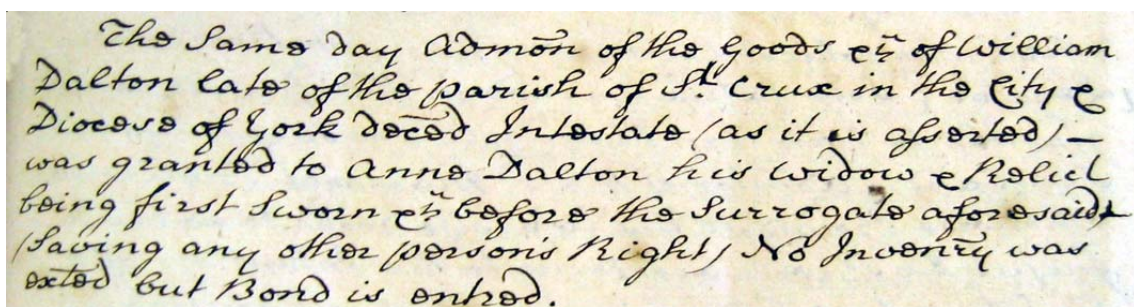 The Same day Admõn of the Goods &c of William
Dalton late of the parish of St. Crux in the City &
Diocese of York decēd Intestate (as it is asserted) —
was granted to Anne Dalton his widow & Relict
being first Sworn &c before the Surrogate aforesaid,
(Saving any other person's Right) No Invenr̄y was
exted but Bond is entred.